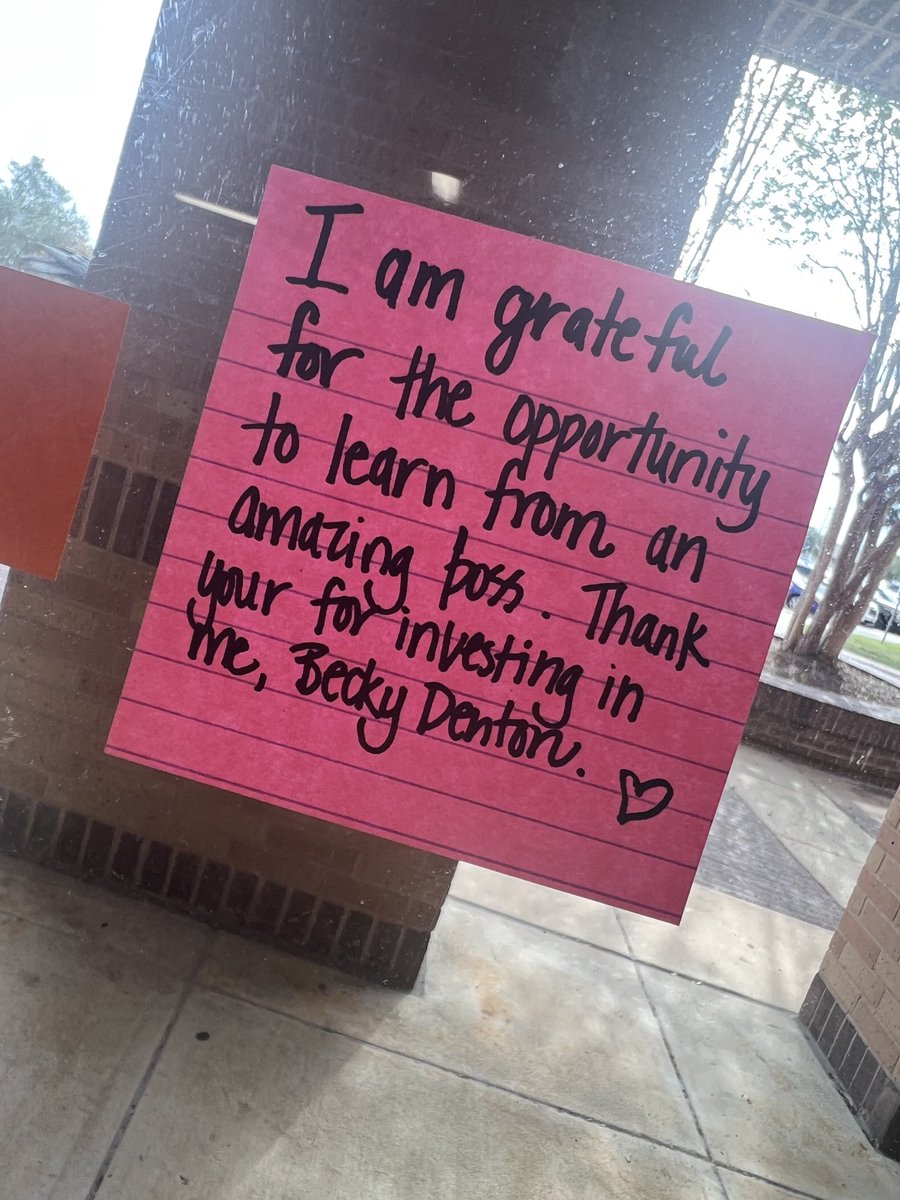 I am grateful
for the opportunity
to learn from an
amazing boss. Thank
your for investing in
me, Becky Denton. ♡